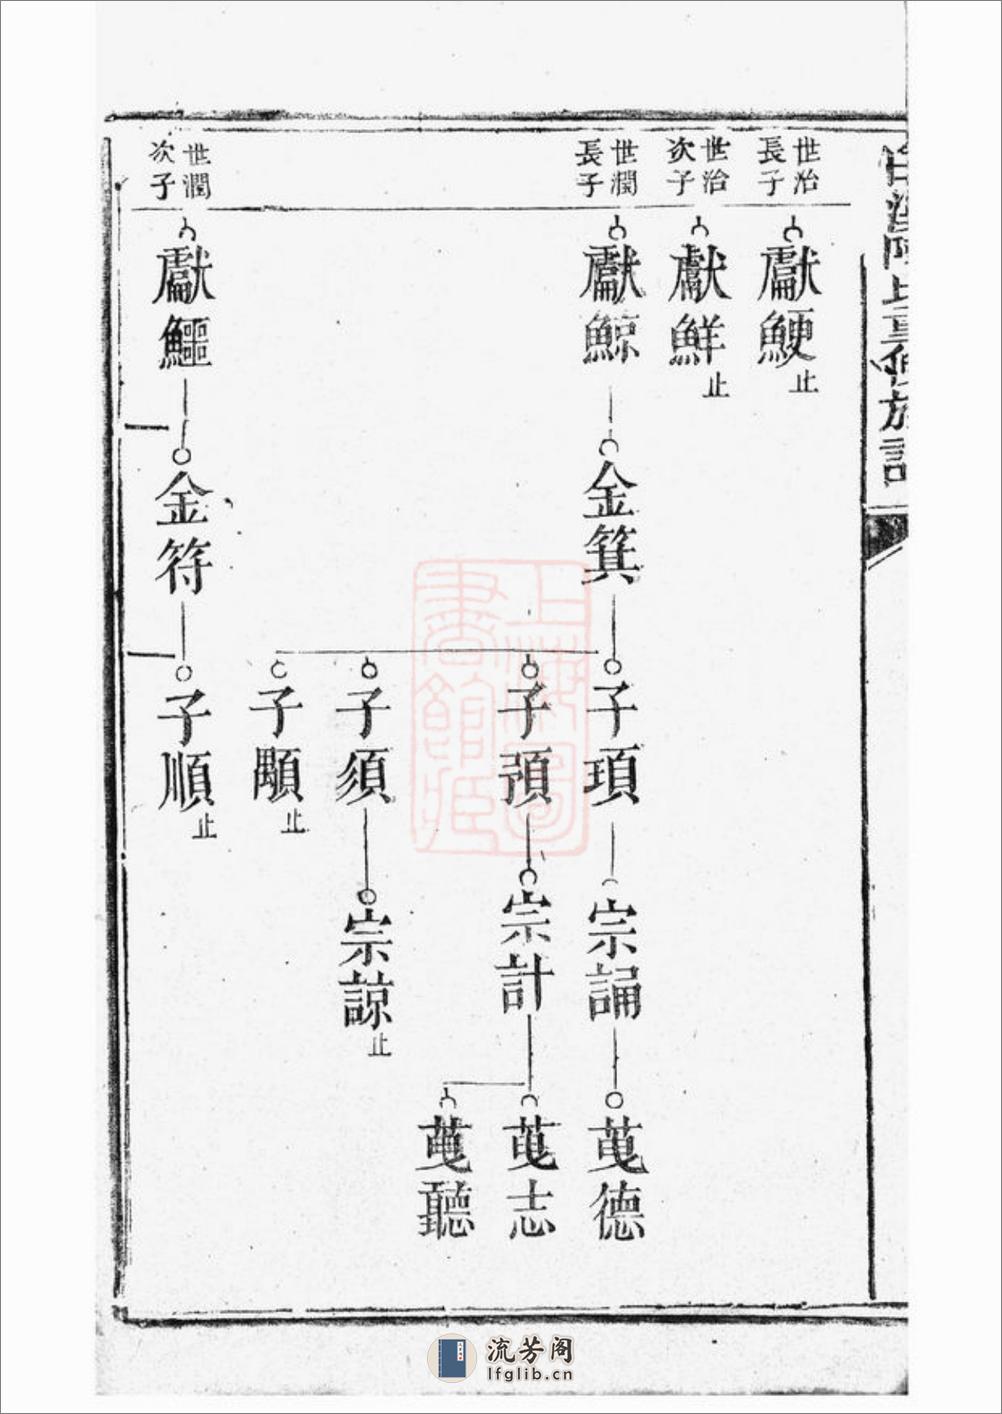 陳氏重修族譜
世治
長子
獻鯁
止
世治
次子
獻鮮
止
世潤
長子
獻鯨
金箕
子項
宗誦
蒐德
子預
宗計
蒐志
蒐聽
子須
宗諒
止
子顒
止
世潤
次子
獻鱷
金符
子順
止
上海圖
書館藏
流芳阁
lfglib.cn